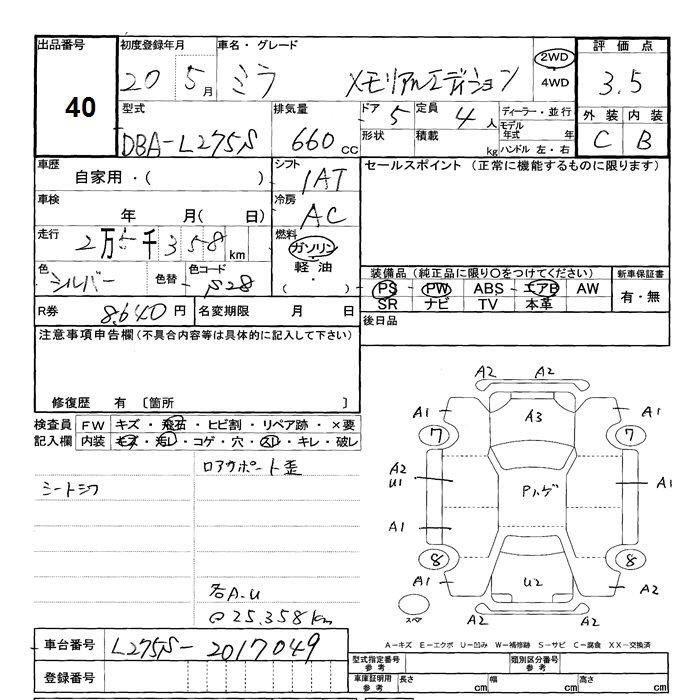 出品番号
40
初度登録年月
20 5月
車名・グレード
ミラ メモリアルエディション
2WD
4WD
評価点
3.5
外装 内装
C B
型式
DBA-L275S
排気量
660 cc
ドア 5
形状
定員 4人
積載 kg
ディーラー・並行
モデル年式 年
ハンドル 左・右
車歴
自家用・( )
シフト
IAT
セールスポイント (正常に機能するものに限ります)
車検
年 月( 日)
冷房
AC
走行
2万5千358km
燃料
ガソリン
軽油
( )
色
シルバー
色替
色コード
S28
装備品(純正品に限り〇をつけてください)
PS PW ABS エアB AW
SR ナビ TV 本革
新車保証書
有・無
R券 8,640円
名変期限 月 日
後日品
注意事項申告欄(不具合内容等は具体的に記入して下さい)
修復歴 有 〔箇所 〕
検査員記入欄
FW キズ・飛石・ヒビ割・リペア跡・×要
内装 キズ・汚レ・コゲ・穴・スレ・キレ・破レ
シートシワ
ロアサポート歪
各A.U
25.358km
A2 A2
A1 A3 A1
7 7
A2
U1
Pハゲ
A1
A1
8 8
A1 U2 A2
スペア
A2 A2
A-キズ E-エクボ U-凹み W-補修跡 S-サビ C-腐食 XX-交換済
車台番号
L275S-2017049
登録番号
型式指定番号 参考
類別区分番号 参考
車庫証明用 参考
長さ cm 幅 cm 高さ cm